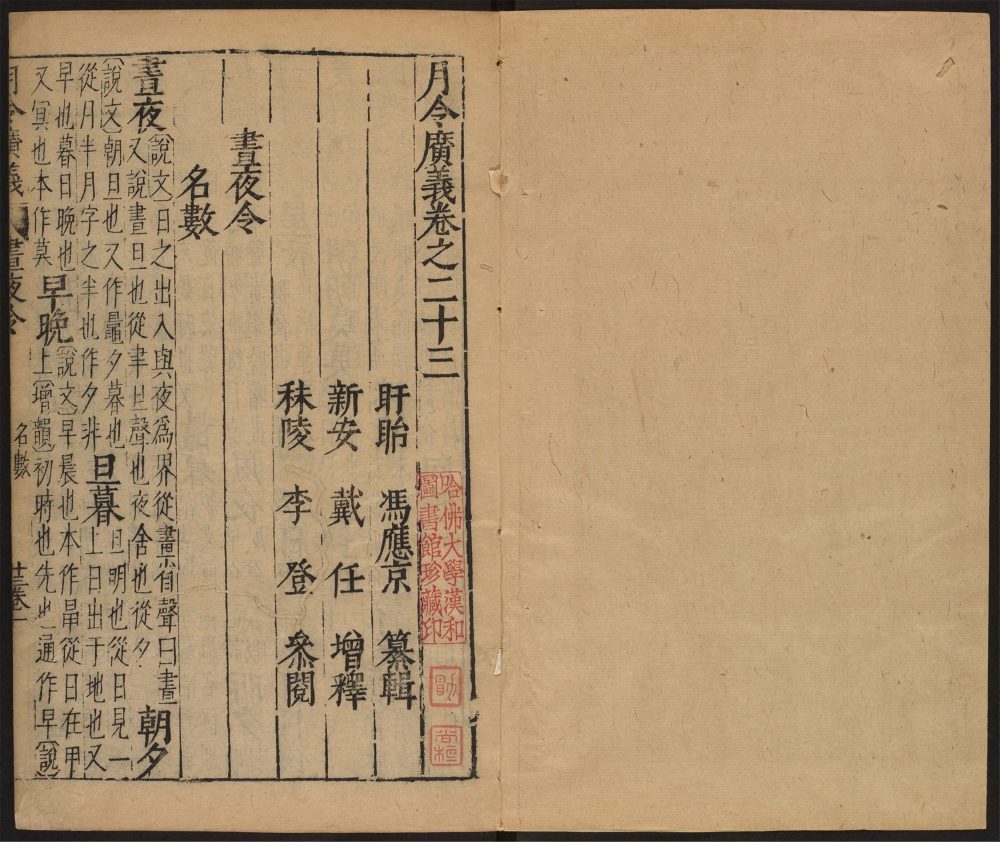 月令廣義卷之二十三
哈佛大學漢和
圖書館珍藏印
盱眙 馮應京 纂輯
新安 戴任 增釋
秣陵 李登 叅閱
晝夜令
名數
晝夜
說文日之出入與夜爲界從畫省聲曰晝
又說晝日也從聿旦聲也夜舍也從夕
朝夕
說文朝旦也又作鼂夕暮也
從月半月字之半也作夕非
旦暮
旦明也從日見一
上日出于地也又
早也暮日晚也
又冥也本作莫
早晚
說文早晨也本作𣅀從日在甲
上增韻初時也先也通作早說
月令廣義 晝夜令 名數 廿三卷 一